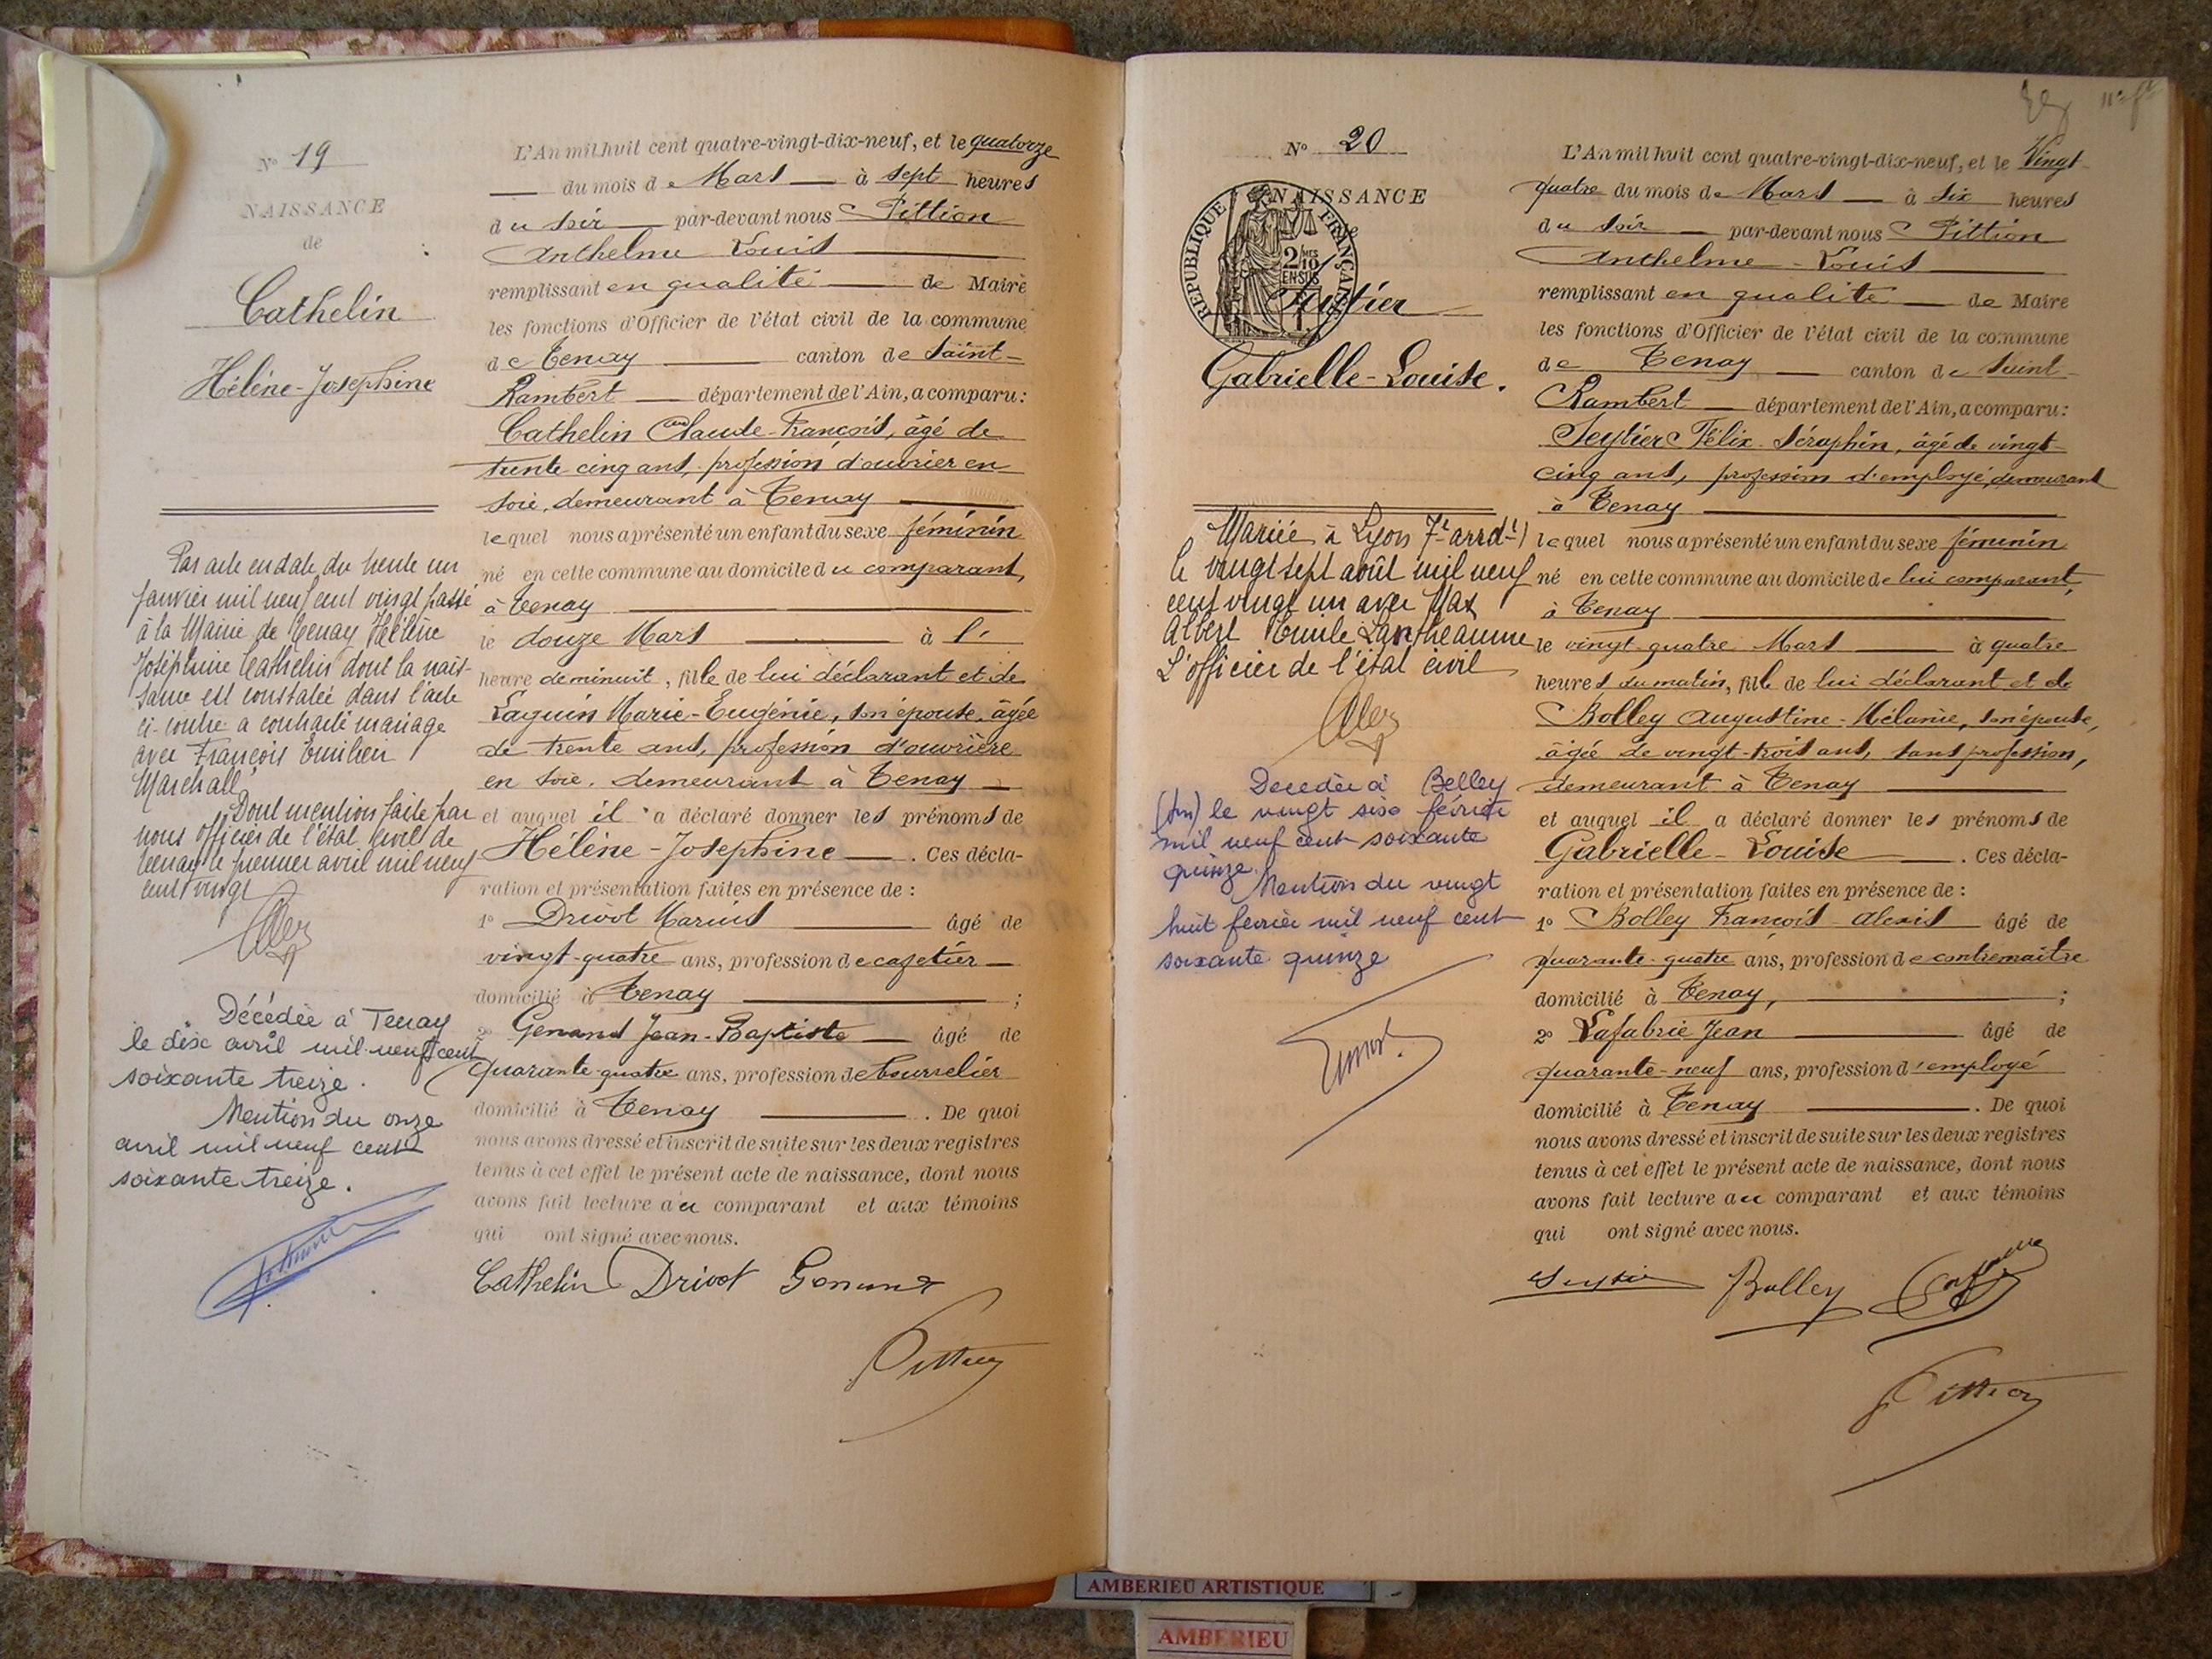 N° 19
NAISSANCE
de
Cathelin
Hélène-Joséphine
Par acte en date du trente un
janvier mil neuf cent vingt passé
à la Mairie de Tenay Hélène
Joséphine Cathelin dont la nais-
sance est constatée dans l'acte
ci-contre a contracté mariage
avec François Emilien
Marchall
Dont mention faite par
nous Officier de l'état civil de
Tenay le premier avril mil neuf
cent vingt
Décédée à Tenay
le dix avril mil neuf cent
soixante treize.
Mention du onze
avril mil neuf cent
soixante treize.
L'An mil huit cent quatre-vingt-dix-neuf, et le quatorze
du mois de Mars à sept heures
du soir par-devant nous Pittion
Anthelme Louis
remplissant en qualité de Maire
les fonctions d'Officier de l'état civil de la commune
de Tenay canton de Saint-
Rambert département de l'Ain, a comparu:
Cathelin Claude-François, âgé de
trente cinq ans, profession d'ouvrier en
soie, demeurant à Tenay
lequel nous a présenté un enfant du sexe féminin
né en cette commune au domicile du comparant,
à Tenay
le douze Mars à l'
heure de minuit, fille de lui déclarant et de
Laguin Marie-Eugénie, son épouse, âgée
de trente ans, profession d'ouvrière
en soie, demeurant à Tenay
et auquel il a déclaré donner les prénoms de
Hélène-Joséphine. Ces décla-
ration et présentation faites en présence de :
1° Drivot Marius âgé de
vingt-quatre ans, profession de cafetier
domicilié à Tenay ;
2° Genand Jean-Baptiste âgé de
quarante-quatre ans, profession de bourrelier
domicilié à Tenay . De quoi
nous avons dressé et inscrit de suite sur les deux registres
tenus à cet effet le présent acte de naissance, dont nous
avons fait lecture au comparant et aux témoins
qui ont signé avec nous.
Cathelin Drivot Genand
Pittion
N° 20
NAISSANCE
de
Seytier
Gabrielle-Louise.
RÉPUBLIQUE FRANÇAISE
2/10 MES
EN SUS
Mariée à Lyon 7e arrdt)
le vingt sept août mil neuf
cent vingt un avec Max
Albert Emile Lantheaume
L'officier de l'état civil
Décédée à Belley
(Ain) le vingt six février
mil neuf cent soixante
quinze.
Mention du vingt
huit février mil neuf cent
soixante quinze
L'An mil huit cent quatre-vingt-dix-neuf, et le Vingt
quatre du mois de Mars à six heures
du soir par-devant nous Pittion
Anthelme-Louis
remplissant en qualité de Maire
les fonctions d'Officier de l'état civil de la commune
de Tenay canton de Saint-
Rambert département de l'Ain, a comparu:
Seytier Félix Séraphin, âgé de vingt
cinq ans, profession d'employé, demeurant
à Tenay
lequel nous a présenté un enfant du sexe féminin
né en cette commune au domicile de lui comparant,
à Tenay
le vingt quatre Mars à quatre
heures du matin, fille de lui déclarant et de
Bolley Augustine-Mélanie, son épouse,
âgée de vingt-trois ans, sans profession,
demeurant à Tenay
et auquel il a déclaré donner les prénoms de
Gabrielle-Louise. Ces décla-
ration et présentation faites en présence de :
1° Bolley François-Alexis âgé de
quarante-quatre ans, profession de contremaître
domicilié à Tenay, ;
2° Lafabrie Jean âgé de
quarante-neuf ans, profession d'employé
domicilié à Tenay . De quoi
nous avons dressé et inscrit de suite sur les deux registres
tenus à cet effet le présent acte de naissance, dont nous
avons fait lecture au comparant et aux témoins
qui ont signé avec nous.
Seytier Bolley
Pittion
AMBERIEU ARTISTIQUE
AMBERIEU